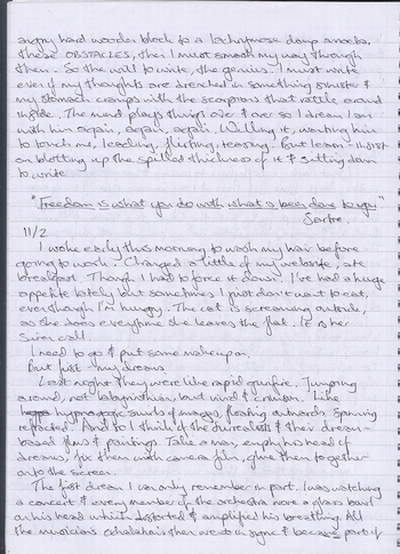 angry hard wooden block to a lachrymose damp amoeba,
these OBSTACLES, then I must smash my way through
them. So the will to write, the genius. I must write
even if my thoughts are drenched in something sinister &
my stomach cramps with the scorpions that rattle around
inside. The mind plays things over & over so I dream I am
with him again, again, again. Willing it, wanting him
to touch me, leading, flirting, teasing. But learn - insist
on blotting up the spilled thickness of it & sitting down
to write.
"Freedom is what you do with what is been done to you."
Sartre.
11/2
I woke early this morning to wash my hair before
going to work. Changed a little of my website, ate
breakfast. Though I had to force it down. I've had a huge
appetite lately but sometimes I just don't want to eat,
even though I'm hungry. The cat is screaming outside,
as she does everytime she leaves the flat. It is her
siren call.
I need to go & put some makeup on.
But first - my dreams.
Last night they were like rapid gunfire. Jumping
around, not labyrinthian, but vivid & crimson. Like
hypnagogic swirls of images, floating outwards, spinning
refracted. And so I think of the surrealists & their dream-
based films & paintings. Take a man, empty his head of
dreams, fix them with camera film, glue them together
onto the screen.
The first dream I can only remember in part. I was watching
a concert & every member of the orchestra wore a glass bowl
on his head which distorted & amplified his breathing. All
the musicians exhalations then went in sync & became part of